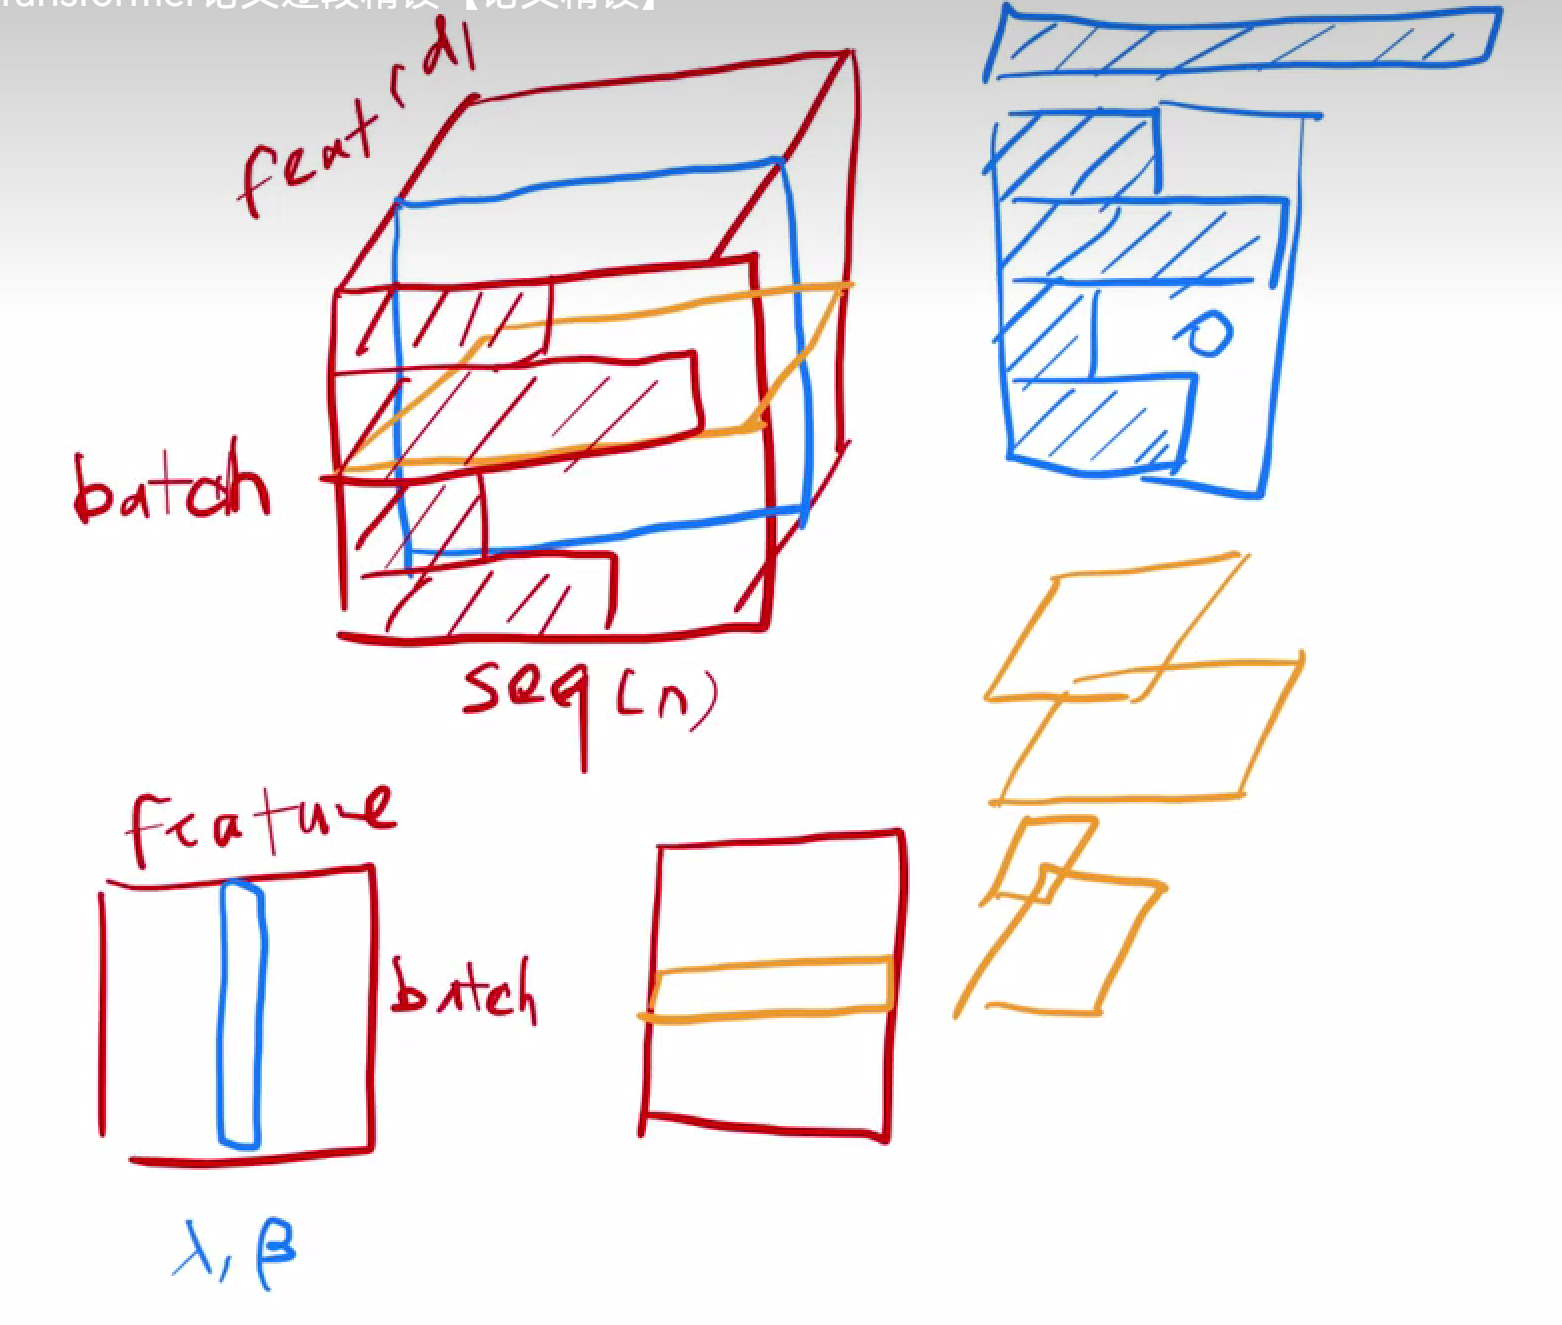 Transformer论文逐段精读【论文精读】
feat (d)
batch
seq (n)
0
feature
batch
λ, β